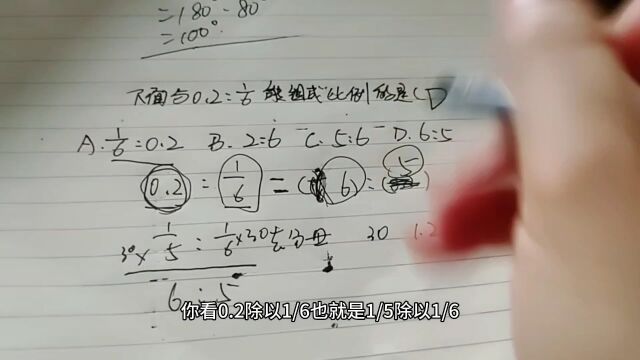 =180°-80°
=100°
下面与0.2:1/6能组成比例的是(D
A.1/6=0.2 B.2=6 C.5:6 D.6:5
0.2:1/6=(6):(5)
30×1/5:1/6×30去分母 30 1.2
6:5
你看0.2除以1/6也就是1/5除以1/6